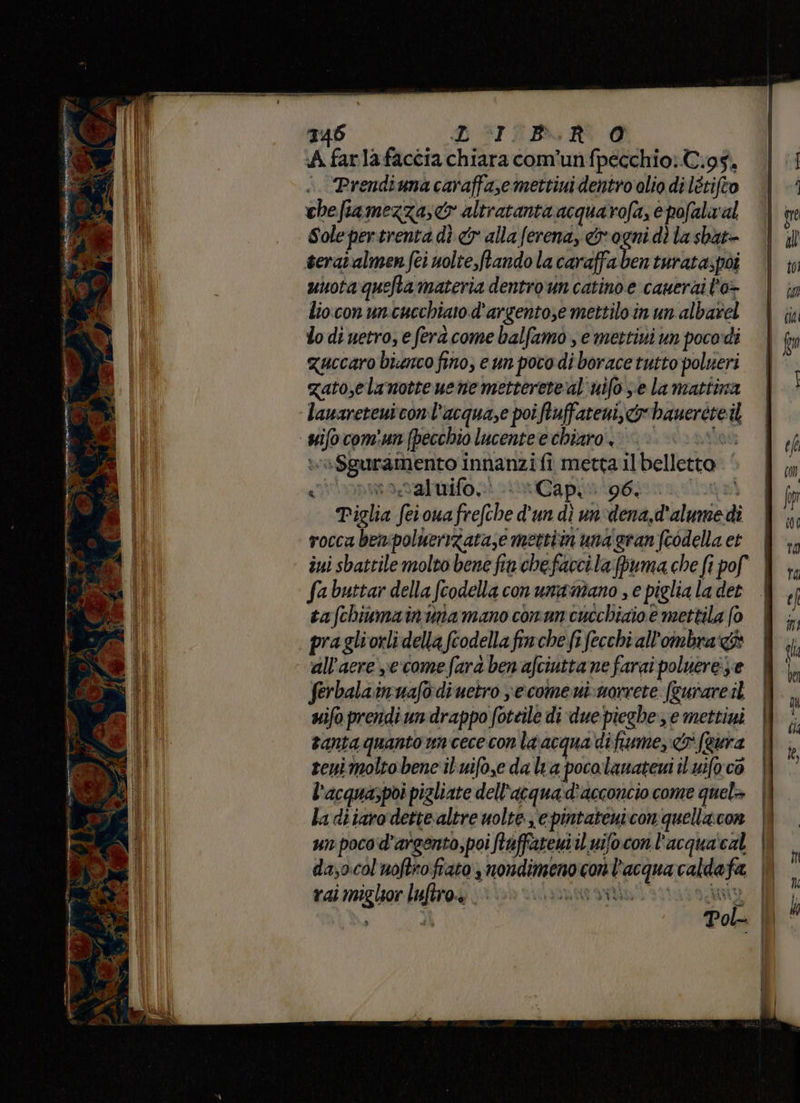 146 L I B R O
A far la faccia chiara com'un ſpecchio. C.95.
Prendi una caraffa, e mettiui dentro olio di lētiſco
che ſia mezza, & altratanta acqua roſa, e poſala al
Sole per trenta dì & alla ſerena, & ogni dì la sbat-
terai almen ſei uolte, ſtando la caraffa ben turata, poi
uuota queſta materia dentro un catino e cauerai l'o-
lio con un cucchiaro d'argento, e mettilo in un albarel
lo di uetro, e ferà come balſamo, e mettiui un poco di
zuccaro bianco fino, e un poco di borace tutto polueri
zato, e la notte ue ne metterete al uiſo, e la mattina
lauareteui con l'acqua, e poi ſtuffateui, & hauerete il
uiſo com'un ſpecchio lucente e chiaro.
Sguramento innanzi ſi metta il belletto
al uiſo. Cap. 96.
Piglia ſei oua freſche d'un dì un dena. d'alume di
rocca ben poluerizata, e metti in una gran ſcodella et
iui sbattile molto bene fin che facci la ſpuma che ſi poſ
ſa buttar della ſcodella con una mano, e piglia la det
ta ſchiuma in una mano con un cucchiaio e mettila ſo
pra gli orli della ſcodella fin che ſi ſecchi all'ombra &
all'aere, e come ſarà ben aſciutta ne farai poluere, e
ſerbala in uaſo di uetro, e come ui uorrete ſgurare il
uiſo prendi un drappo ſottile di due pieghe, e mettiui
tanta quanto un cece con la acqua di fiume, & ſgura
teui molto bene il uiſo, e da li a poco lauateui il uiſo cō
l'acqua, poi pigliate dell'acqua d'acconcio come quel-
la di iaro dette altre uolte, e pintateui con quella con
un poco d'argento, poi ſtuffateui il uiſo con l'acqua cal
da, o col uoſtro fiato, nondimeno con l'acqua calda fa
rai miglior luſtro.
Pol-